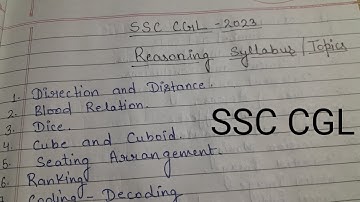 SSC CGL - 2023
Reasoning Syllabus / Topics
1. Direction and Distance.
2. Blood Relation.
3. Dice.
4. Cube and Cuboid.
5. Seating Arrangement.
6. Ranking
7. Coding - Decoding
SSC CGL